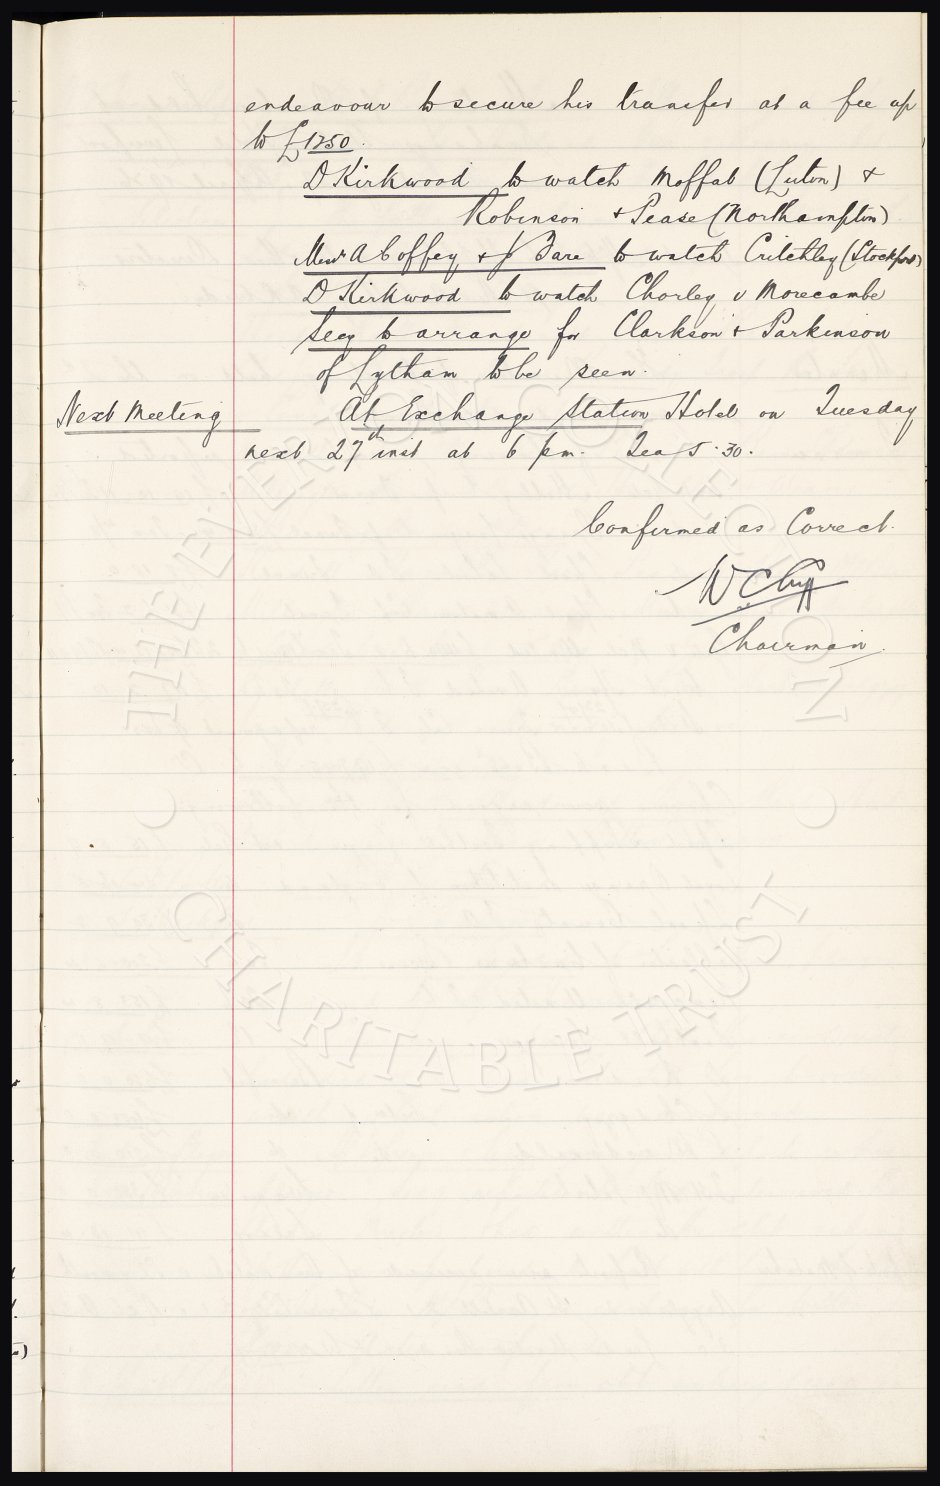 endeavour to secure his transfer at a fee up
to £1250.
D Kirkwood to watch Moffat (Luton) +
Robinson + Pease (Northampton)
Messrs A Coffey + J Bare to watch Critchley (Stockport)
D Kirkwood to watch Chorley v Morecambe
Secy to arrange for Clarkson + Parkinson
of Lytham to be seen.
Next Meeting At Exchange Station Hotel on Tuesday
next 27th inst at 6 pm. Tea 5.30.
Confirmed as Correct.
W C Cuff
Chairman.
THE EVERTON COLLECTION
CHARITABLE TRUST